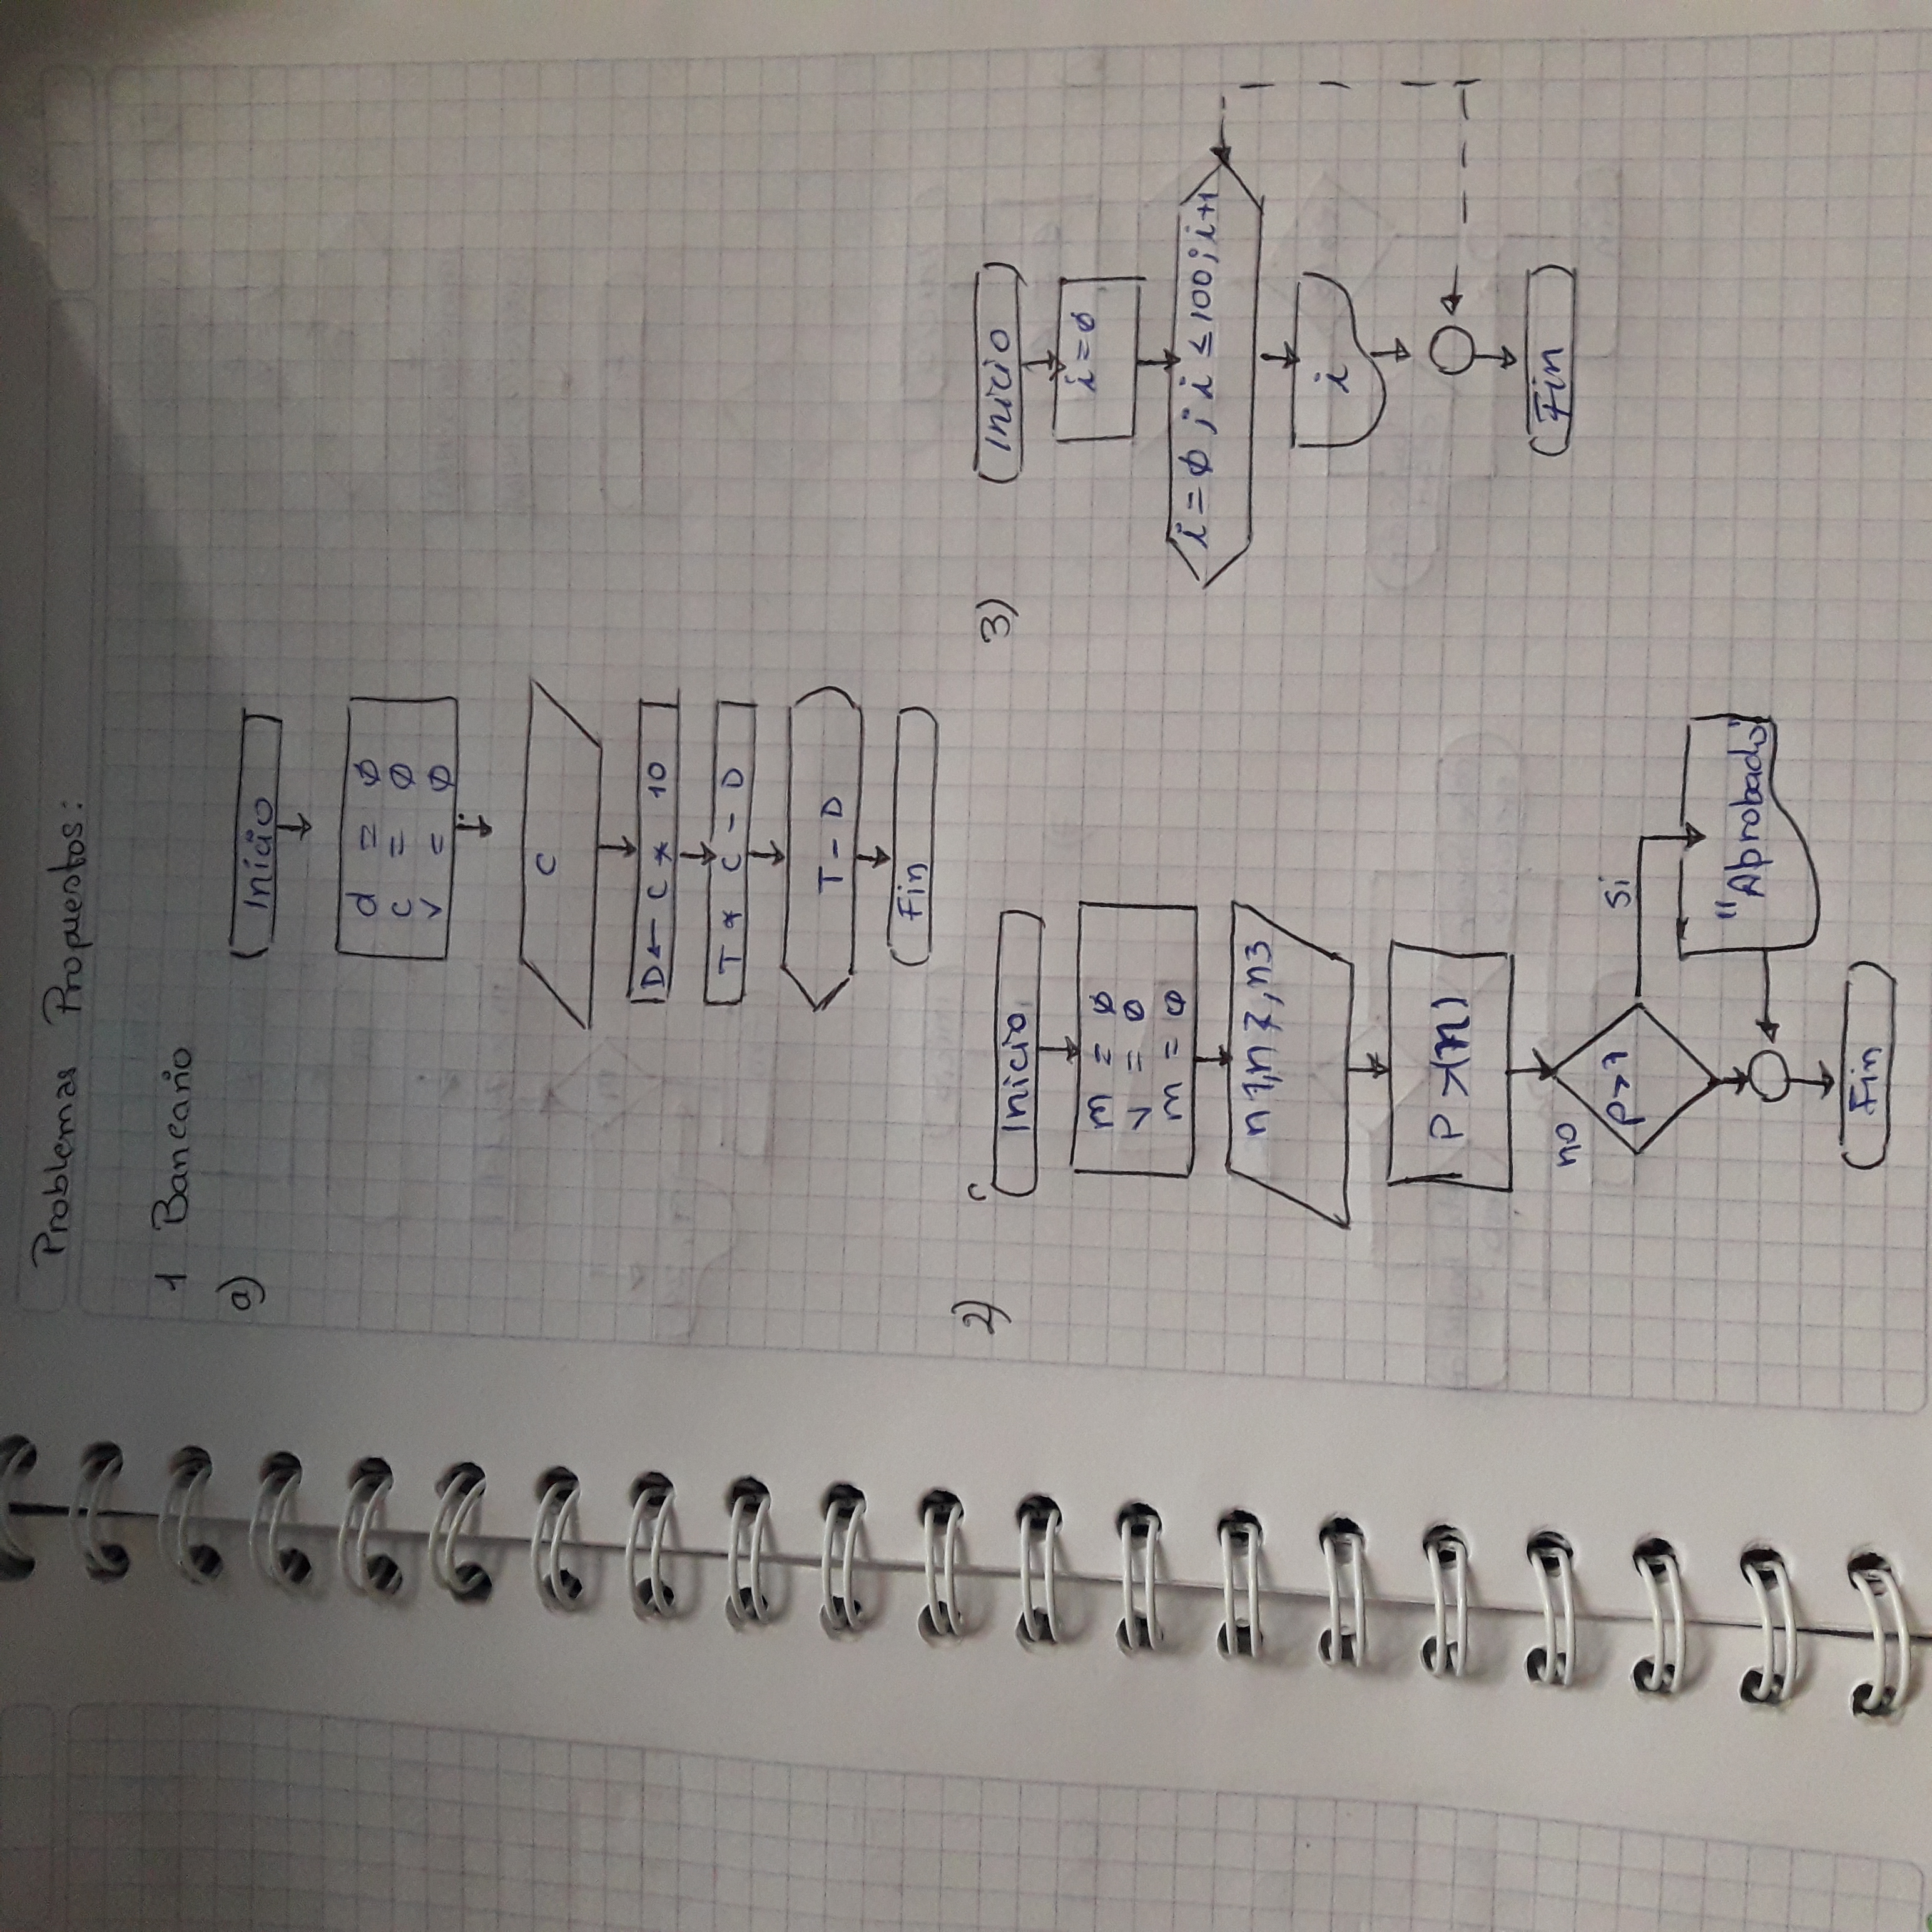 Problemas Propuestos:
1 Bancario
a)
Inicio
d = ∅
c = ∅
v = ∅
C
D ← C * 10
T * C - D
T - D
Fin
2)
Inicio
m = ∅
v = ∅
m = ∅
n1, n2, n3
P >(n)
no
P > 7
si
"Aprobado"
Fin
3)
Inicio
i = ∅
i = ∅ ; i ≤ 100; i+1
i
Fin